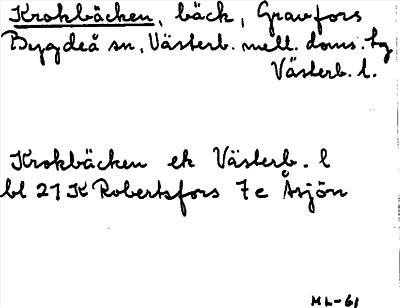 Krokbäcken, bäck, Gravfors
Bygdeå sn, Västerb. mell. doms. hg
Västerb. l.
Krokbäcken ek Västerb. l
bl 21 K Robertsfors 7c Åsjön
ML-61